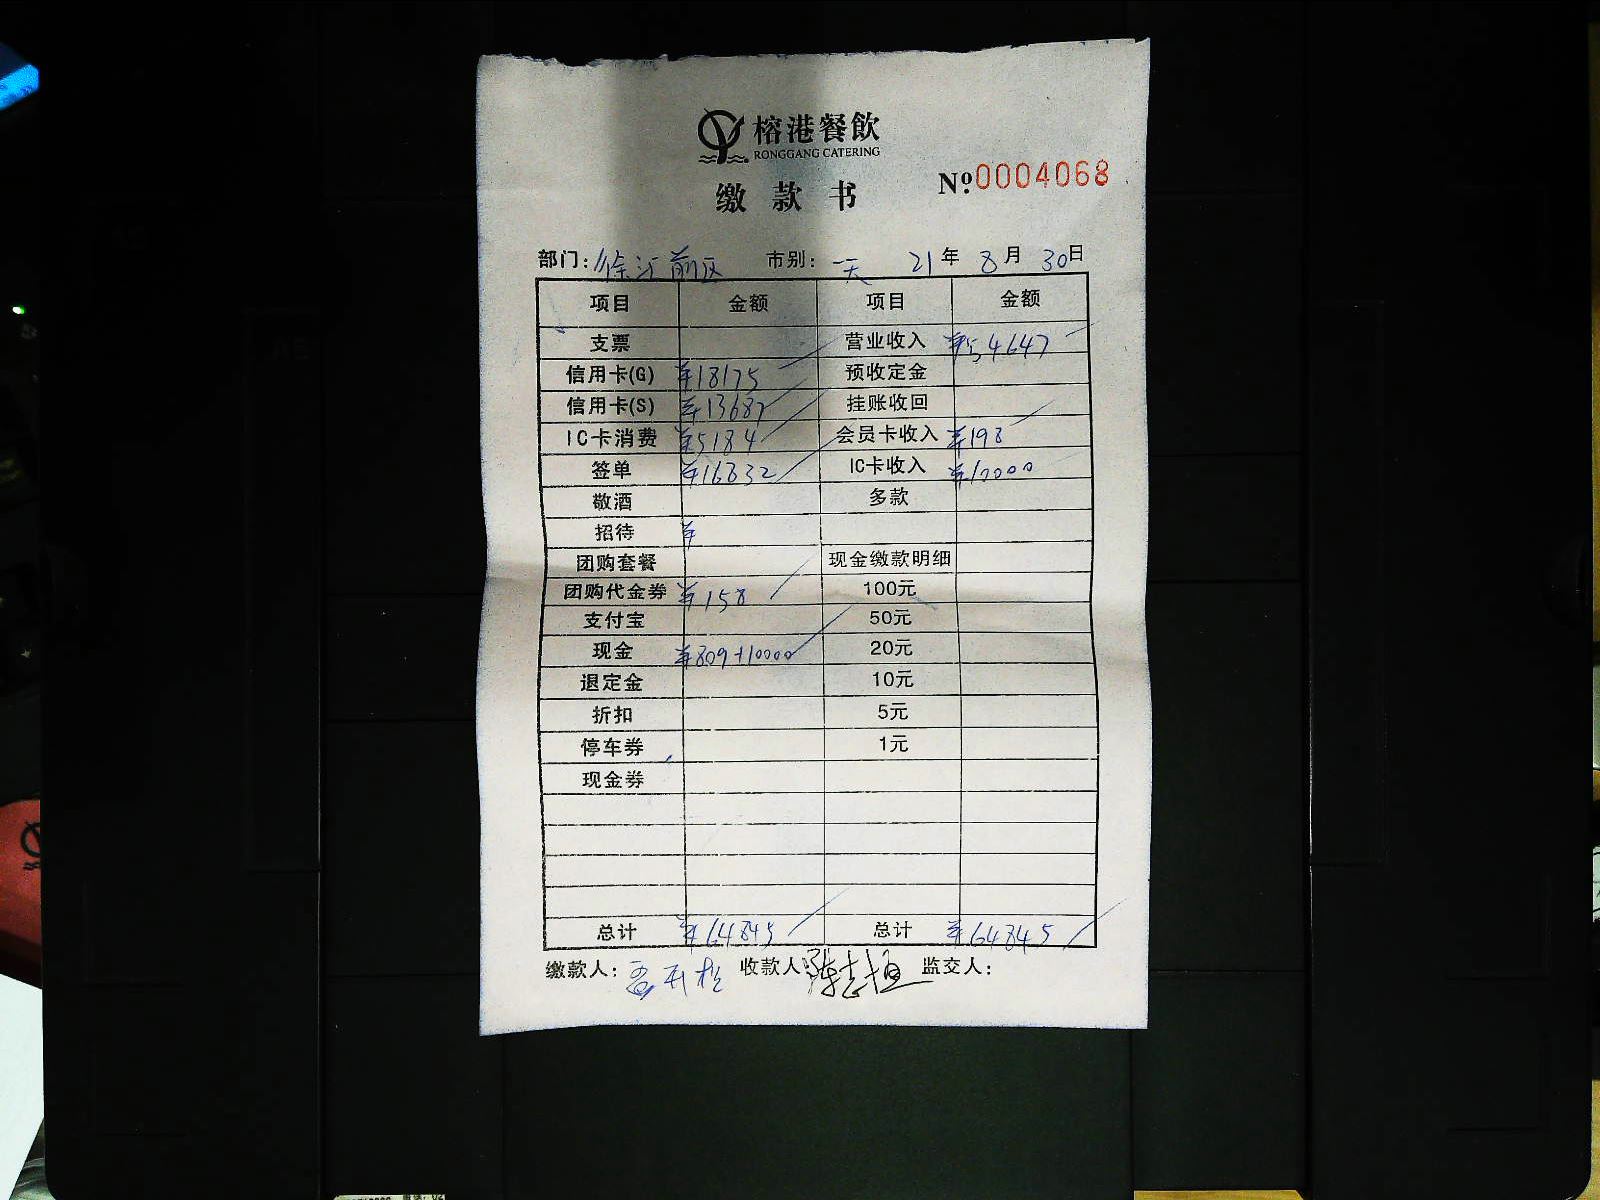 榕港餐飲
RONGGANG CATERING
缴款书 №0004068
部门: 徐汇前区 市别: 一天 21年 8月 30日
项目 金额 项目 金额
支票 营业收入 ¥54647
信用卡(G) ¥18175 预收定金
信用卡(S) ¥13687 挂账收回
IC卡消费 ¥5184 会员卡收入 ¥198
签单 ¥16832 IC卡收入 ¥10000
敬酒 多款
招待 ¥
团购套餐 现金缴款明细
团购代金券 ¥158 100元
支付宝 50元
现金 ¥809+10000 20元
退定金 10元
折扣 5元
停车券 1元
现金券
总计 ¥64845 总计 ¥64845
缴款人: 收款人: 监交人: